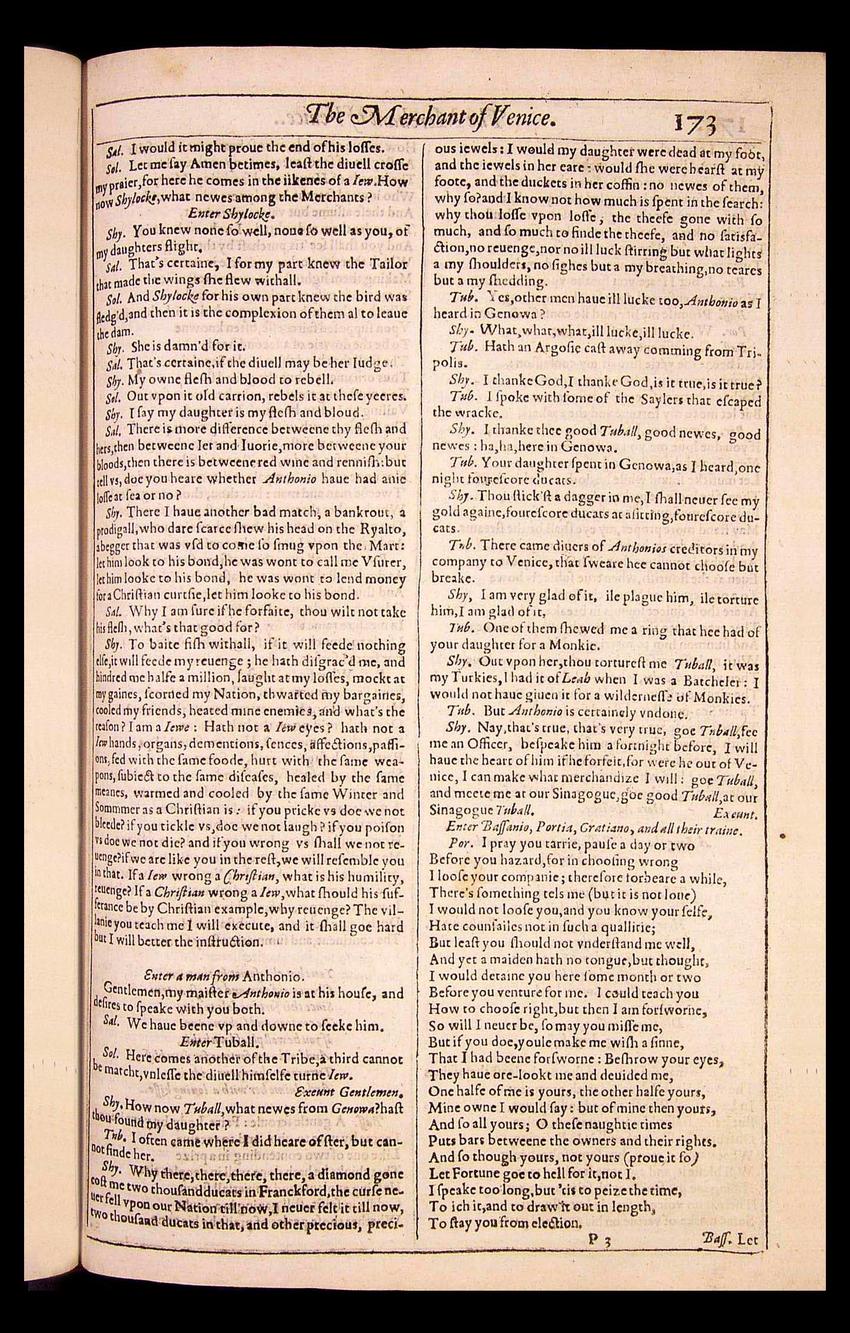 The Merchant of Venice.
173
Sal. I would it might proue the end of his losses.
Sol. Let me say Amen betimes, least the diuell crosse
my praier, for here he comes in the likenes of a Iew. How
now Shylocke, what newes among the Merchants?
Enter Shylocke.
Shy. You knew none so well, none so well as you, of
my daughters flight.
Sal. That's certaine, I for my part knew the Tailor
that made the wings she flew withall.
Sol. And Shylocke for his own part knew the bird was
fledg'd, and then it is the complexion of them al to leaue
the dam.
Shy. She is damn'd for it.
Sal. That's certaine, if the diuell may be her Iudge.
Shy. My owne flesh and blood to rebell.
Sol. Out vpon it old carrion, rebels it at these yeeres.
Shy. I say my daughter is my flesh and bloud.
Sal. There is more difference betweene thy flesh and
hers, then betweene Iet and Iuorie, more betweene your
bloods, then there is betweene red wine and rennish: but
tell vs, doe you heare whether Anthonio haue had anie
losse at sea or no?
Shy. There I haue another bad match, a bankrout, a
prodigall, who dare scarce shew his head on the Ryalto,
a begger that was vsd to come so smug vpon the Mart:
let him look to his bond, he was wont to call me Vsurer,
let him looke to his bond, he was wont to lend money
for a Christian curtsie, let him looke to his bond.
Sal. Why I am sure if he forfaite, thou wilt not take
his flesh, what's that good for?
Shy. To baite fish withall, if it will feede nothing
else, it will feede my reuenge; he hath disgrac'd me, and
hindred me halfe a million, laught at my losses, mockt at
my gaines, scorned my Nation, thwarted my bargaines,
cooled my friends, heated mine enemies, and what's the
reason? I am a Iewe: Hath not a Iew eyes? hath not a
Iew hands, organs, dementions, sences, affections, passi-
ons, fed with the same foode, hurt with the same wea-
pons, subiect to the same diseases, healed by the same
meanes, warmed and cooled by the same Winter and
Sommmer as a Christian is: if you pricke vs doe we not
bleede? if you tickle vs, doe we not laugh? if you poison
vs doe we not die? and if you wrong vs shall we not re-
uenge? if we are like you in the rest, we will resemble you
in that. If a Iew wrong a Christian, what is his humility,
reuenge? If a Christian wrong a Iew, what should his suf-
ferance be by Christian example, why reuenge? The vil-
lanie you teach me I will execute, and it shall goe hard
but I will better the instruction.
Enter a man from Anthonio.
Gentlemen, my maister Anthonio is at his house, and
desires to speake with you both.
Sal. We haue beene vp and downe to seeke him.
Enter Tuball.
Sol. Here comes another of the Tribe, a third cannot
be matcht, vnlesse the diuell himselfe turne Iew.
Exeunt Gentlemen.
Shy. How now Tuball, what newes from Genowa? hast
thou found my daughter?
Tub. I often came where I did heare of ster, but can-
not finde her.
Shy. Why there, there, there, there, a diamond gone
cost me two thousand ducats in Franckford, the curse ne-
uer fell vpon our Nation till now, I neuer felt it till now,
two thousand ducats in that, and other precious, preci-
ous iewels: I would my daughter were dead at my foot,
and the iewels in her eare: would she were hearst at my
foote, and the duckets in her coffin: no newes of them,
why so? and I know not how much is spent in the search:
why thou losse vpon losse, the theefe gone with so
much, and so much to finde the theefe, and no satisfa-
ction, no reuenge, nor no ill luck stirring but what lights
a my shoulders, no sighes but a my breathing, no teares
but a my shedding.
Tub. Yes, other men haue ill lucke too, Anthonio as I
heard in Genowa?
Shy. What, what, what, ill lucke, ill lucke.
Tub. Hath an Argosie cast away comming from Tri-
polis.
Shy. I thanke God, I thanke God, is it true, is it true?
Tub. I spoke with some of the Saylers that escaped
the wracke.
Shy. I thanke thee good Tuball, good newes, good
newes: ha, ha, here in Genowa.
Tub. Your daughter spent in Genowa, as I heard, one
night fourescore ducats.
Shy. Thou stick'st a dagger in me, I shall neuer see my
gold againe, fourescore ducats at a sitting, fourescore du-
cats.
Tub. There came diuers of Anthonios creditors in my
company to Venice, that sweare hee cannot choose but
breake.
Shy, I am very glad of it, ile plague him, ile torture
him, I am glad of it,
Tub. One of them shewed me a ring that hee had of
your daughter for a Monkie.
Shy. Out vpon her, thou torturest me Tuball, it was
my Turkies, I had it of Leah when I was a Batcheler: I
would not haue giuen it for a wildernesse of Monkies.
Tub. But Anthonio is certainely vndone.
Shy. Nay, that's true, that's very true, goe Tuball, fee
me an Officer, bespeake him a fortnight before, I will
haue the heart of him if he forfeit, for were he out of Ve-
nice, I can make what merchandize I will: goe Tuball,
and meete me at our Sinagogue, goe good Tuball, at our
Sinagogue Tuball. Exeunt.
Enter Bassanio, Portia, Gratiano, and all their traine.
Por. I pray you tarrie, pause a day or two
Before you hazard, for in choosing wrong
I loose your companie; therefore forbeare a while,
There's something tels me (but it is not loue)
I would not loose you, and you know your selfe,
Hate counsailes not in such a quallitie;
But least you should not vnderstand me well,
And yet a maiden hath no tongue, but thought,
I would detaine you here some month or two
Before you venture for me. I could teach you
How to choose right, but then I am forsworne,
So will I neuer be, so may you misse me,
But if you doe, youle make me wish a sinne,
That I had beene forsworne: Beshrow your eyes,
They haue ore-lookt me and deuided me,
One halfe of me is yours, the other halfe yours,
Mine owne I would say: but of mine then yours,
And so all yours; O these naughtie times
Puts bars betweene the owners and their rights.
And so though yours, not yours (proue it so)
Let Fortune goe to hell for it, not I.
I speake too long, but 'tis to peize the time,
To ich it, and to draw it out in length,
To stay you from election.
P 3 Bass. Let